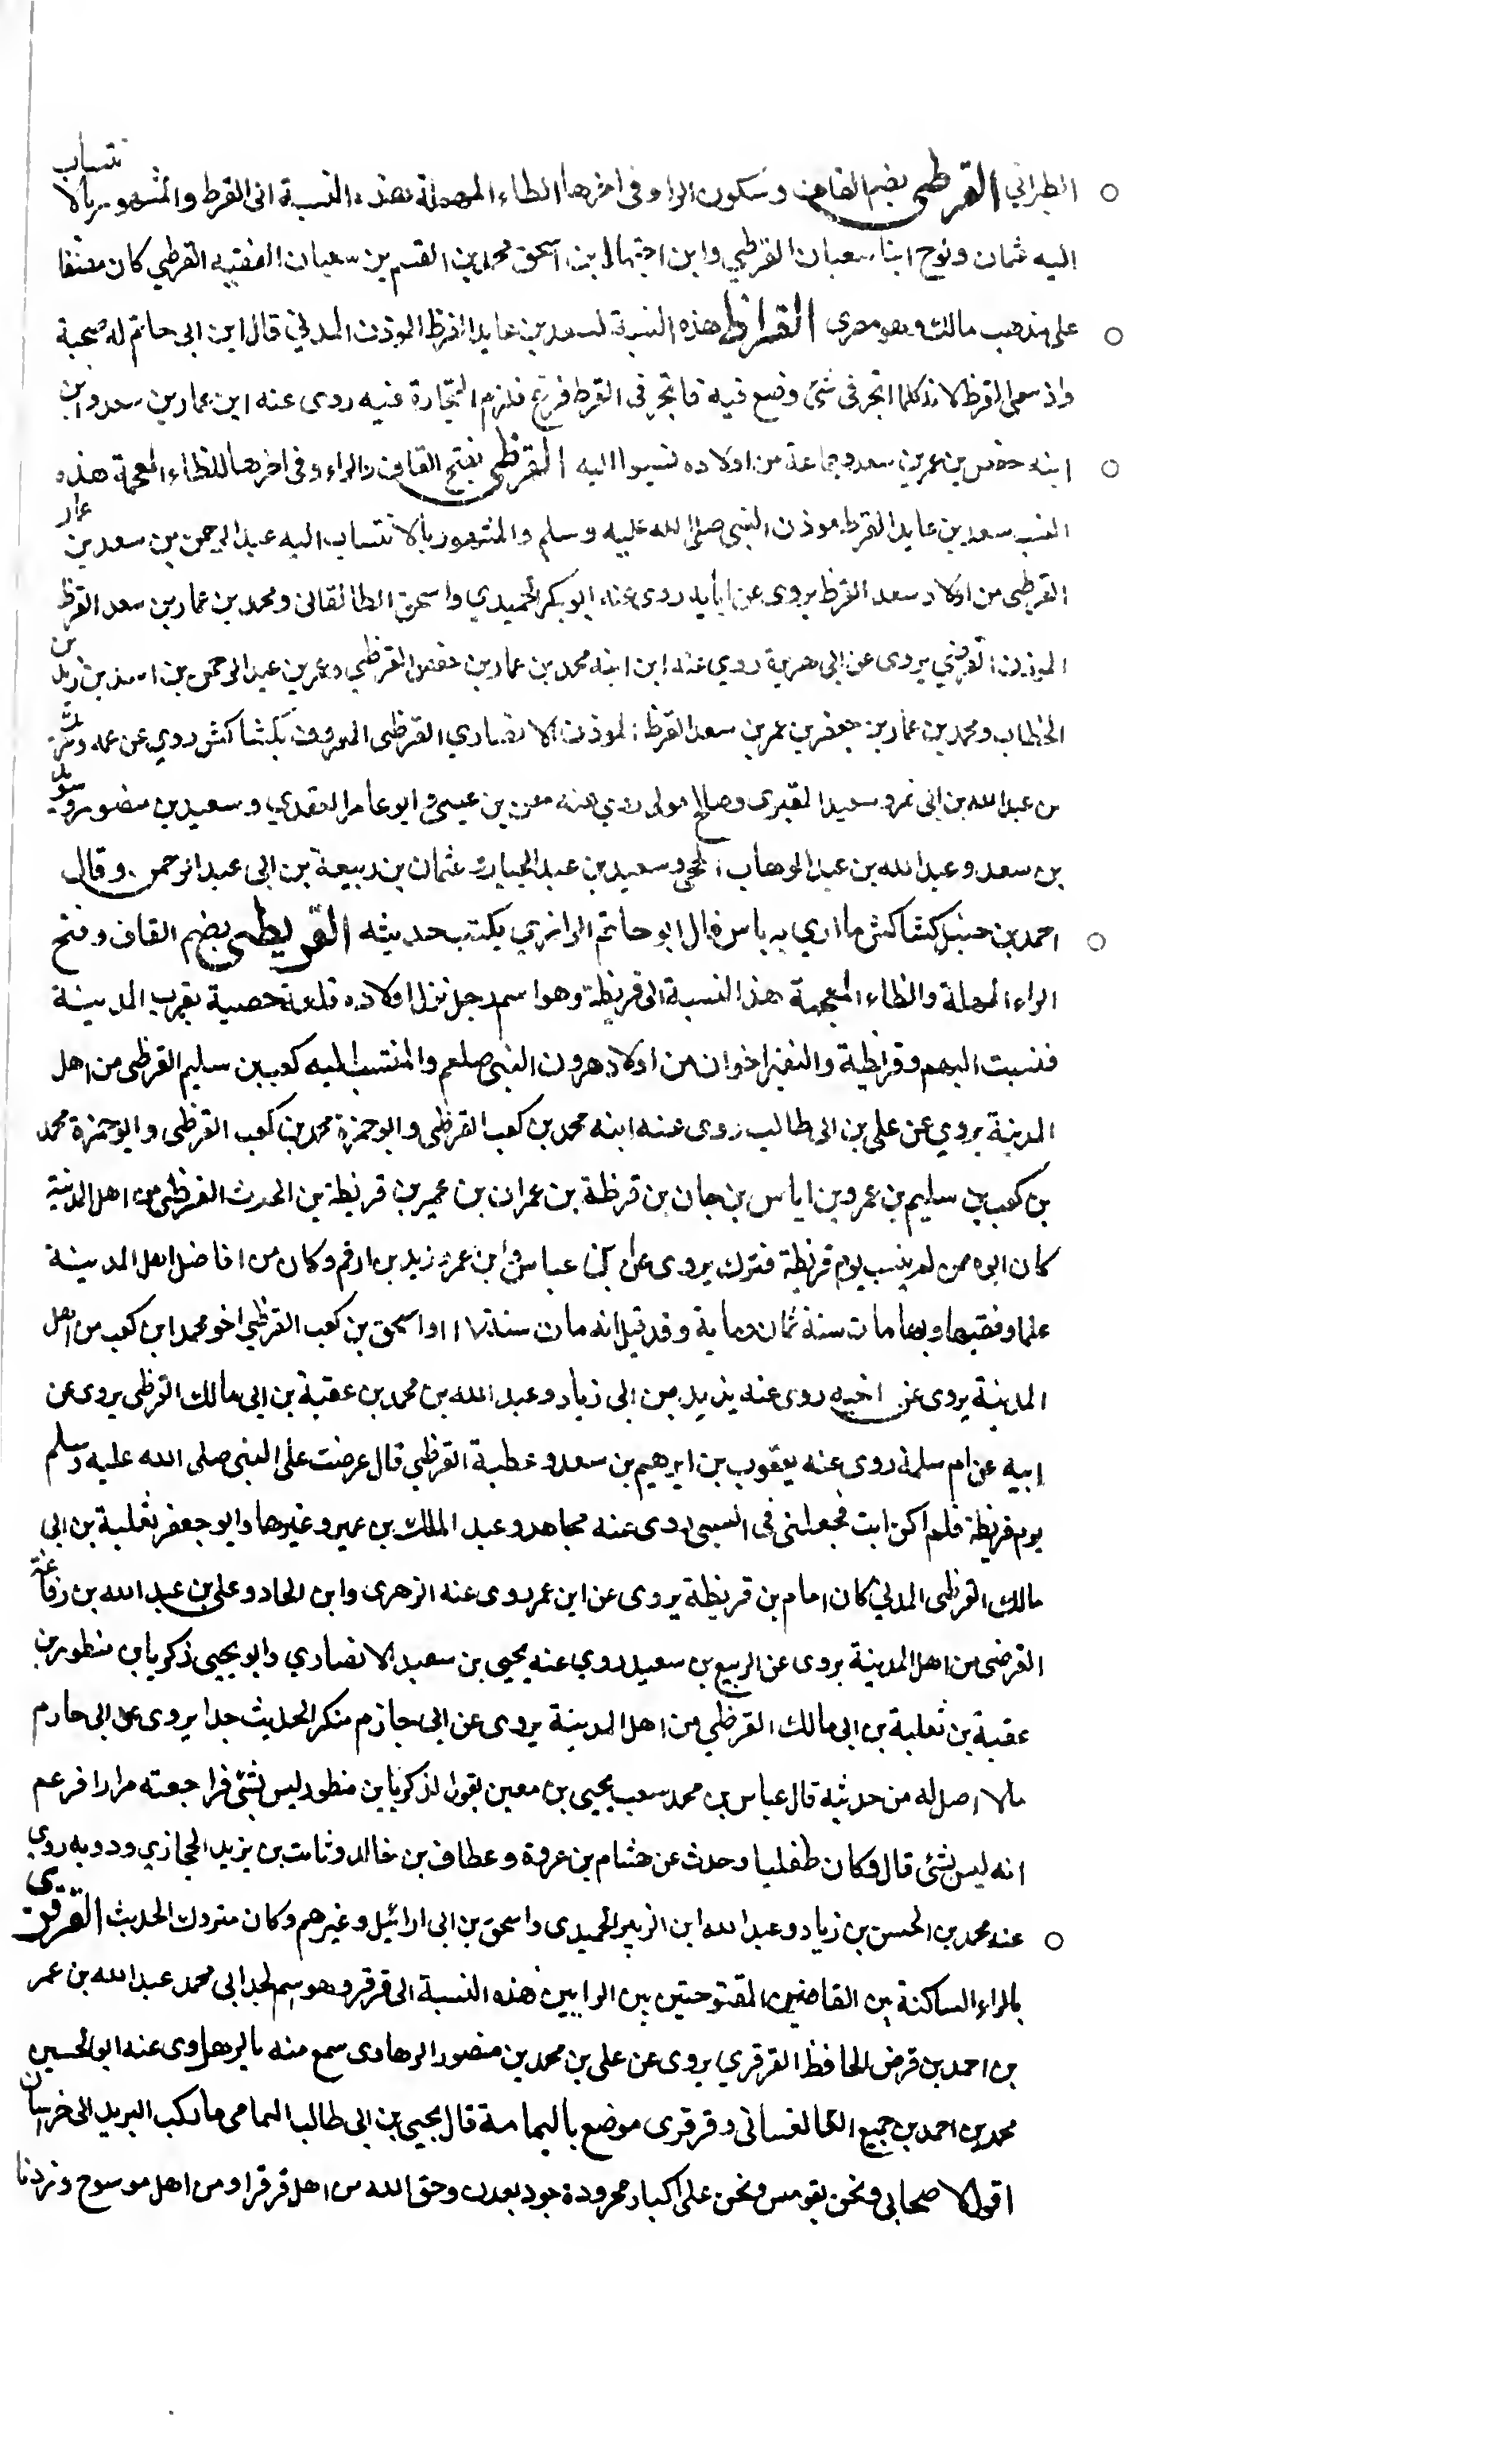 الطبراني القرطى بضم القاف وسكون الرا وفى اخرها الطاء المهملة هذه النسبة الى القرط والمشهور بالانتساب
اليه عثمان ونوح ابنا سعبان القرطي وابن اسحق محمد بن القسم بن سعبان الفقيه القرطي كان
على مذهب مالك وهو مصرى القرظ هذه النسبة لسعد بن عايد القرظ الموذن المدني قال ابن ابى حاتم له صحبة
سمى القرظ لانه كلما اتجر فى شئ وضع فيه فاتجر فى القرظ فربح فلزم التجارة فيه روى عنه ابن عمار بن سعد وابن
ابنه حفص بن عمر بن سعد وجماعة من اولاده نسبوا اليه القرظى بفتح القاف والراء وفى اخرها الظاء المعجمة هذه
النسب سعد بن عايد القرظ موذن النبى صلى الله عليه وسلم والمشهور بالانتساب اليه عبد الرحمن بن سعد بن عمار
القرظى من اولاد سعد القرظ يروى عن روى عنه ابو بكر الحميدي واسحق الطالقانى ومحمد بن عمار بن سعد القرظ
الموذن يروى عن ابى هريرة روي عنه ابن ابنه محمد بن عمار بن حفص القرظي وعمر بن عبد الرحمن بن زيد بن
الخطاب ومحمد بن عمار بن حفص بن عمر بن سعد القرظ الموذن الانصاري القرظى المعروف بكشاكش روي عن عمه
بن عبد الله بن ابى نمر وسعيد المقبرى وصالح مولى روي عنه معن بن عيسى وابو عامر العقدي وسعيد بن منصور وسويد
بن سعد وعبد الله بن عبد الوهاب الحجي وسعيد بن عبد الجبار عثمان بن ربيعة بن ابى عبد الرحمن وقال
احمد بن حنبل كشاكش ما اري به باس قال ابو حاتم الرازي يكتب حديثه القريظى بضم القاف وفتح
الراء المهملة والظاء المعجمة هذا النسبة الى قريظة وهو اسم رجل نزل اولاده قلعة حصينة بقرب المدينة
فنسبت اليهم وقريظة والنضير اخوان من اولاد هرون النبى صلعم والمنتسب اليه كعب بن سليم القرظى من اهل
المدينة يروي عن على بن ابى طالب روى عنه ابنه محمد بن كعب القرظى وابو حمزة محمد بن كعب القرظى وابو حمزة محمد
بن كعب بن سليم بن عمرو بن اياس بن حبان بن قرظة بن عمران بن عمير بن قريظة بن الحرث القرظى من اهل المدينة
كان ابوه ممن لم ينبت يوم قريظة فترك يروى عن ابن عباس وابن عمر وزيد بن ارقم وكان من افاضل اهل المدينة
علما وفقها وبها مات سنة ثمان وماية وقد قيل انه مات سنة ١١٧ واسحق بن كعب القرظي اخو محمد ابن كعب من اهل
المدينة يروى عن اخيه روى عنه يزيد بن ابى زياد وعبد الله بن محمد بن عقبة بن ابى مالك القرظى يروى عن
ابيه عن ام سلمة روى عنه يعقوب بن ابرهيم بن سعد وعطية القرظي قال عرضت على النبى صلى الله عليه وسلم
يوم قريظة فلم اكن انبت فجعلنى فى السبى روى عنه مجاهد وعبد الملك بن عمير وغيرهما وابو جعفر ثعلبة بن ابى
مالك القرظى المدني كان امام بن قريظة يروى عن ابن عمر روى عنه الزهرى وابن الهاد وعلى بن عبد الله بن رفاعة
القرضى من اهل المدينة يروى عن الربيع بن سعيد روي عنه يحيى بن سعيد الانصاري وابو يحيى زكريا بن منظور بن
عقبة بن ثعلبة بن ابى مالك القرظي من اهل المدينة يروى عن ابى حازم منكر الحديث جدا يروى عن ابى حازم
مالا اصل له من حديثه قال عباس بن محمد سمعت يحيى بن معين يقول زكريا بن منظور ليس بشئ فراجعته مرارا فزعم
انه ليس بشئ قال وكان طفليا وحدث عن هشام بن عروة وعطاف بن خالد وثابت بن يزيد الحجازي ودويه روى
عنه محمد بن الحسن بن زياد وعبد الله ابن الزبير الحميدى واسحق بن ابى اسرائيل وغيرهم وكان متروك الحديث القرقرى
بالراء الساكنة بين القافين المفتوحتين بين الرايين هذه النسبة الى قرقر وهو اسم لجد ابى محمد عبد الله بن عمر
بن احمد بن قرقر الحافظ القرقري يروى عن على بن محمد بن منصور الرهاوى سمع منه بالرها روى عنه ابو الحسين
محمد بن احمد بن جميع الغسانى وقرقرى موضع باليمامة قال يحيى بن ابى طالب اليمامى ماركب البريد الى خراسان
اقول لاصحابى ونحن بقومس ونحن على اكبار محرودة جرد بعدنا وحق الله من اهل قرقرا ومن اهل موسوح وزدنا